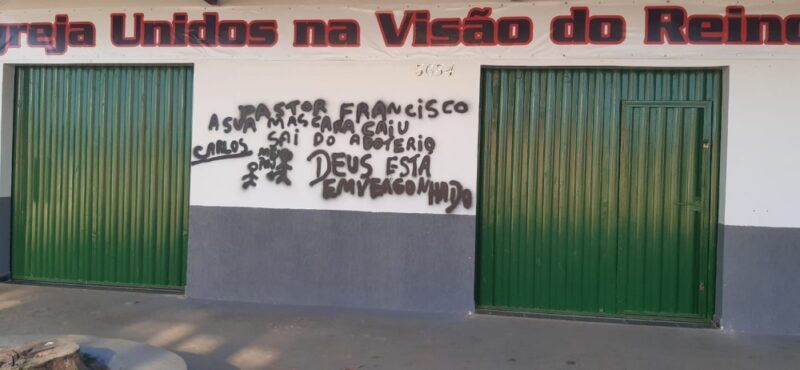 greja Unidos na Visão do Reino
5654
PASTOR FRANCISCO
A SUA MASCARA CAIU
SAI DO ADOTERIO
CARLOS
DEUS ESTA
EMVERGONHADO